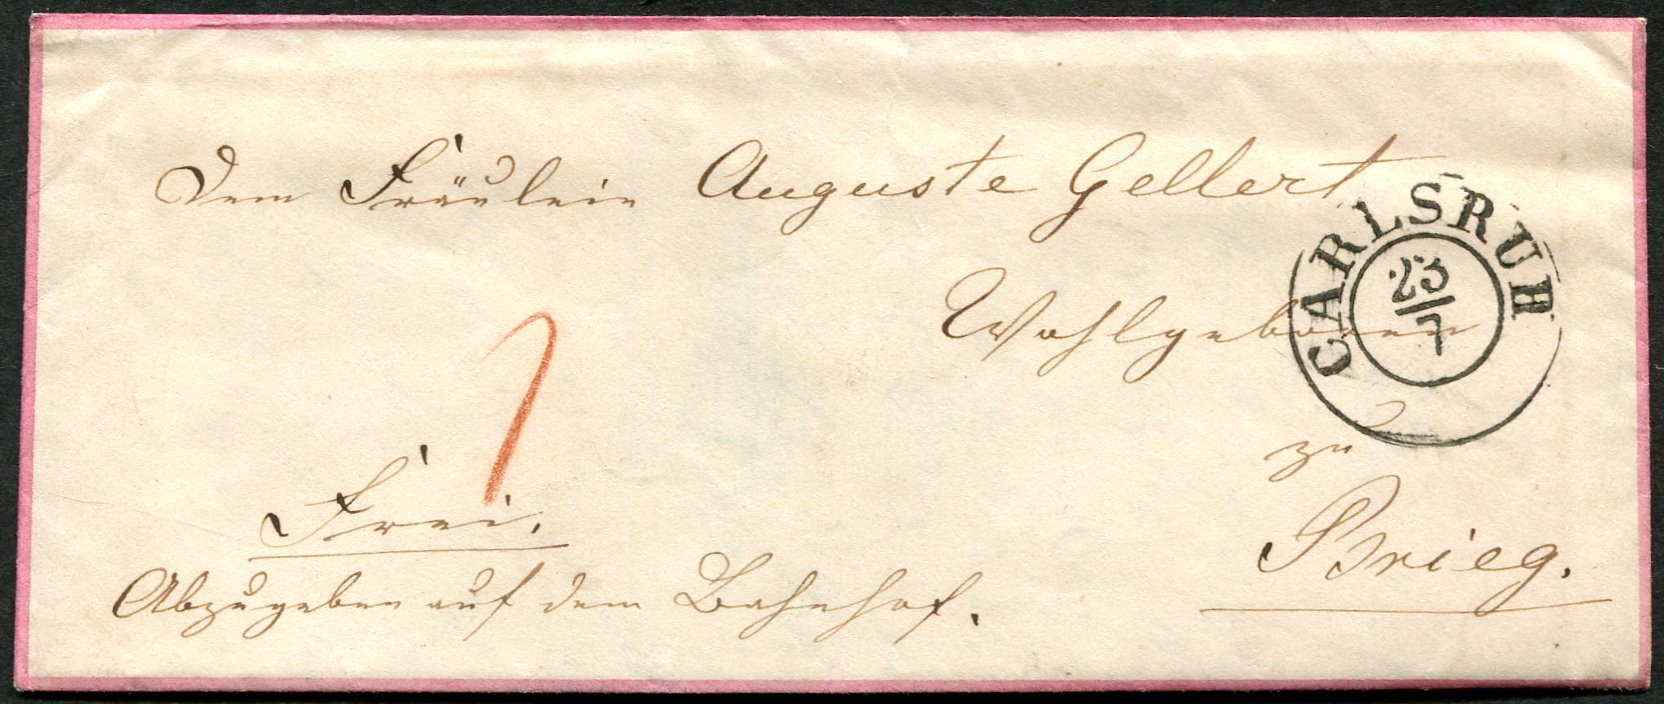 Dem Fräulein Auguste Gellert
Wohlgeboren
CARLSRUH
23/7
zu
Brieg.
Frei.
Abzugeben auf dem Bahnhof.